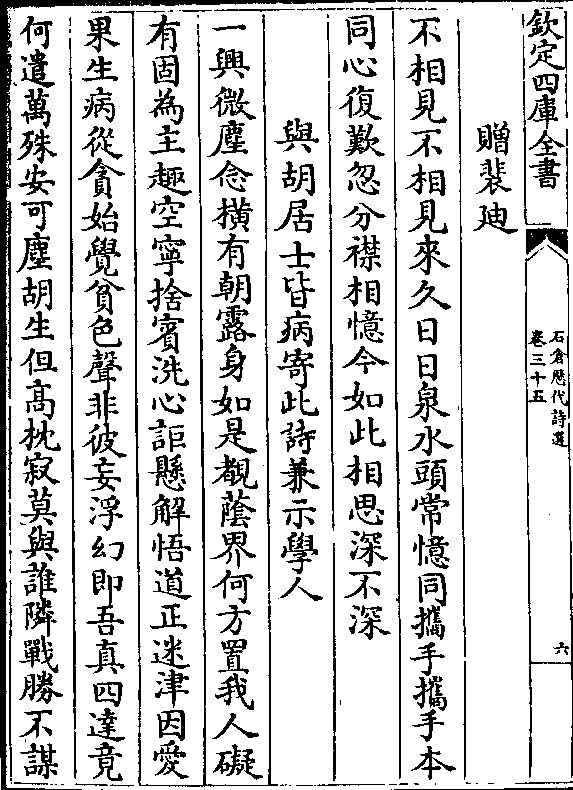 欽定四庫全書
石倉歷代詩選
卷三十五
六
贈裴迪
不相見不相見來久日日泉水頭常憶同攜手攜手本
同心復歎忽分襟相憶今如此相思深不深
與胡居士皆病寄此詩兼示學人
一興微塵念橫有朝露身如是覩蔭界何方置我人礙
有固為主趣空寧捨賓洗心詎懸解悟道正迷津因愛
果生病從貪始覺貧色聲非彼妄浮幻即吾真四達竟
何遣萬殊安可塵胡生但高枕寂莫與誰隣戰勝不謀